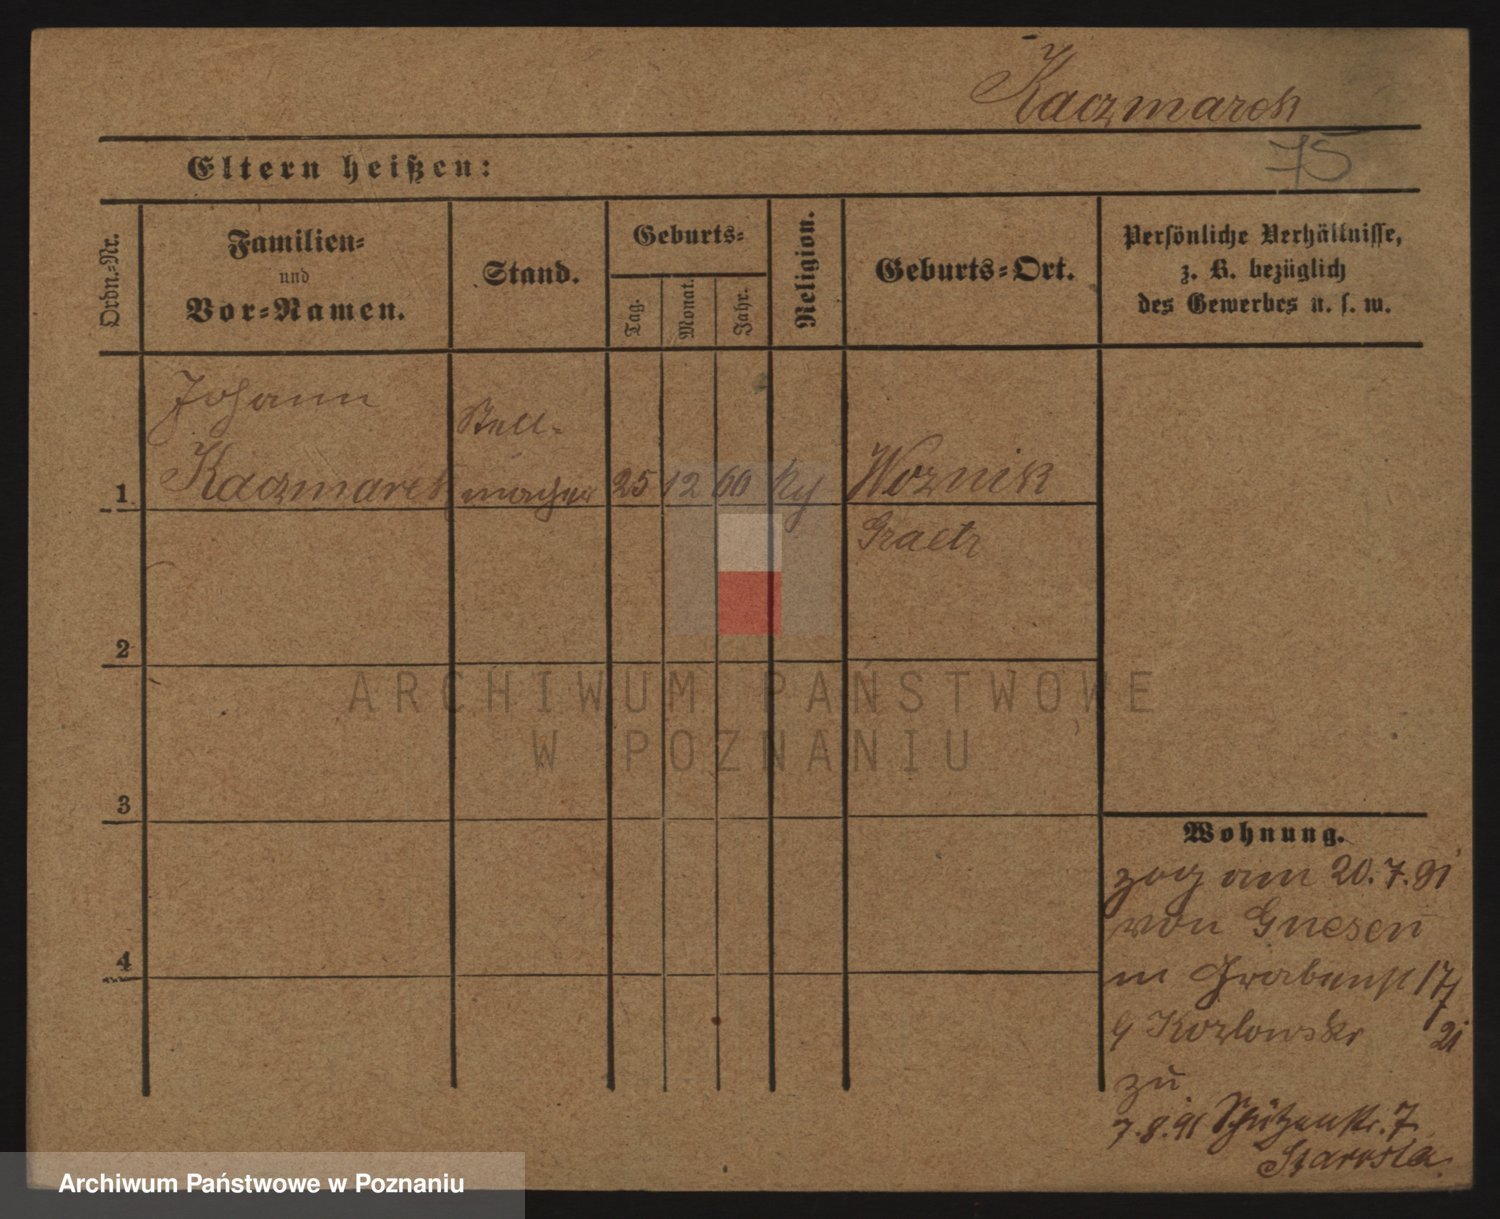 Kaczmarek
75
Eltern heißen:
Ordn.-Nr.
Familien-
und
Vor-Namen.
Stand.
Geburts-
Tag.
Monat.
Jahr.
Religion.
Geburts-Ort.
Persönliche Verhältnisse,
z. B. bezüglich
des Gewerbes u. s. w.
Johann
Kaczmarek
Stell-
macher
1
25
12
66
Woznik
Graetz
2
3
4
Wohnung.
zog am 20. 7. 91
von Gnesen
in Grabenst 17
Kozlowski 21
zu
7. 8. 91 Schützenstr. 7
Starosta
ARCHIWUM PAŃSTWOWE
W POZNANIU
Archiwum Państwowe w Poznaniu